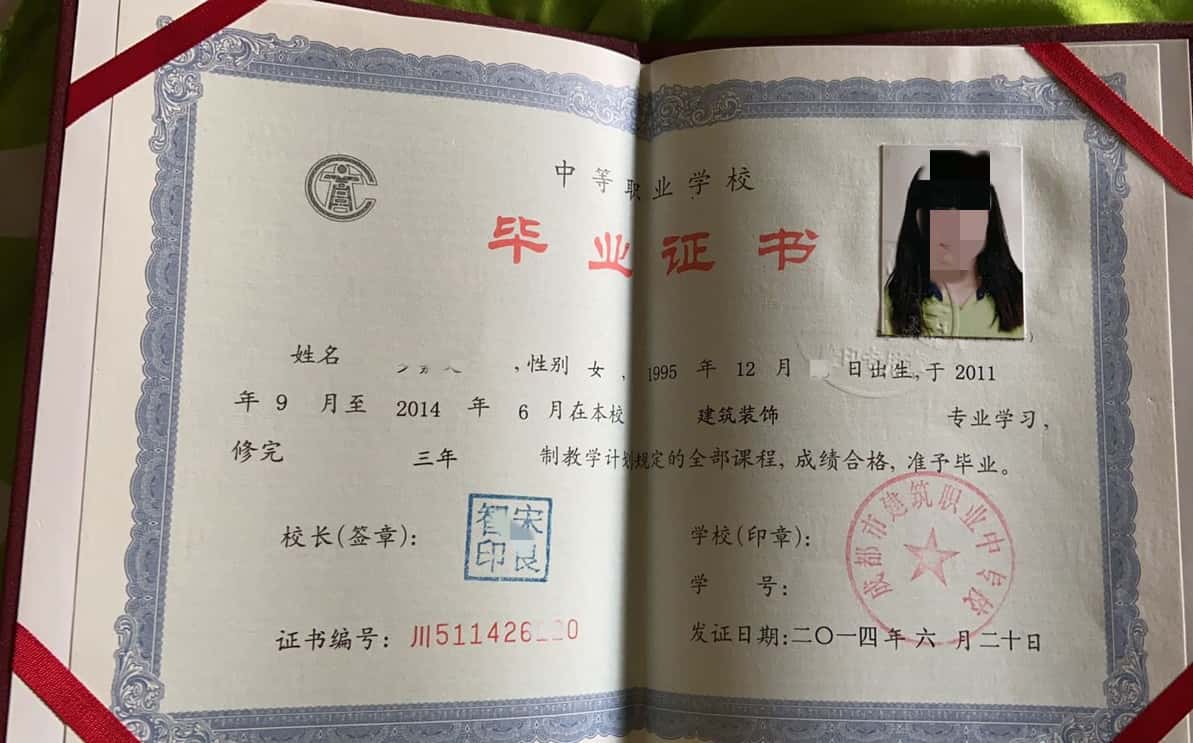 中等职业学校
毕业证书
姓名 ,性别 女 , 1995 年 12 月 日出生,于 2011
年 9 月至 2014 年 6 月在本校 建筑装饰 专业学习,
修完 三年 制教学计划规定的全部课程,成绩合格,准予毕业。
校长(签章):
智宋
印良
学校(印章):
成都市建筑职业中专校
学 号:
证书编号: 川511426 0
发证日期:二〇一四年六月二十日